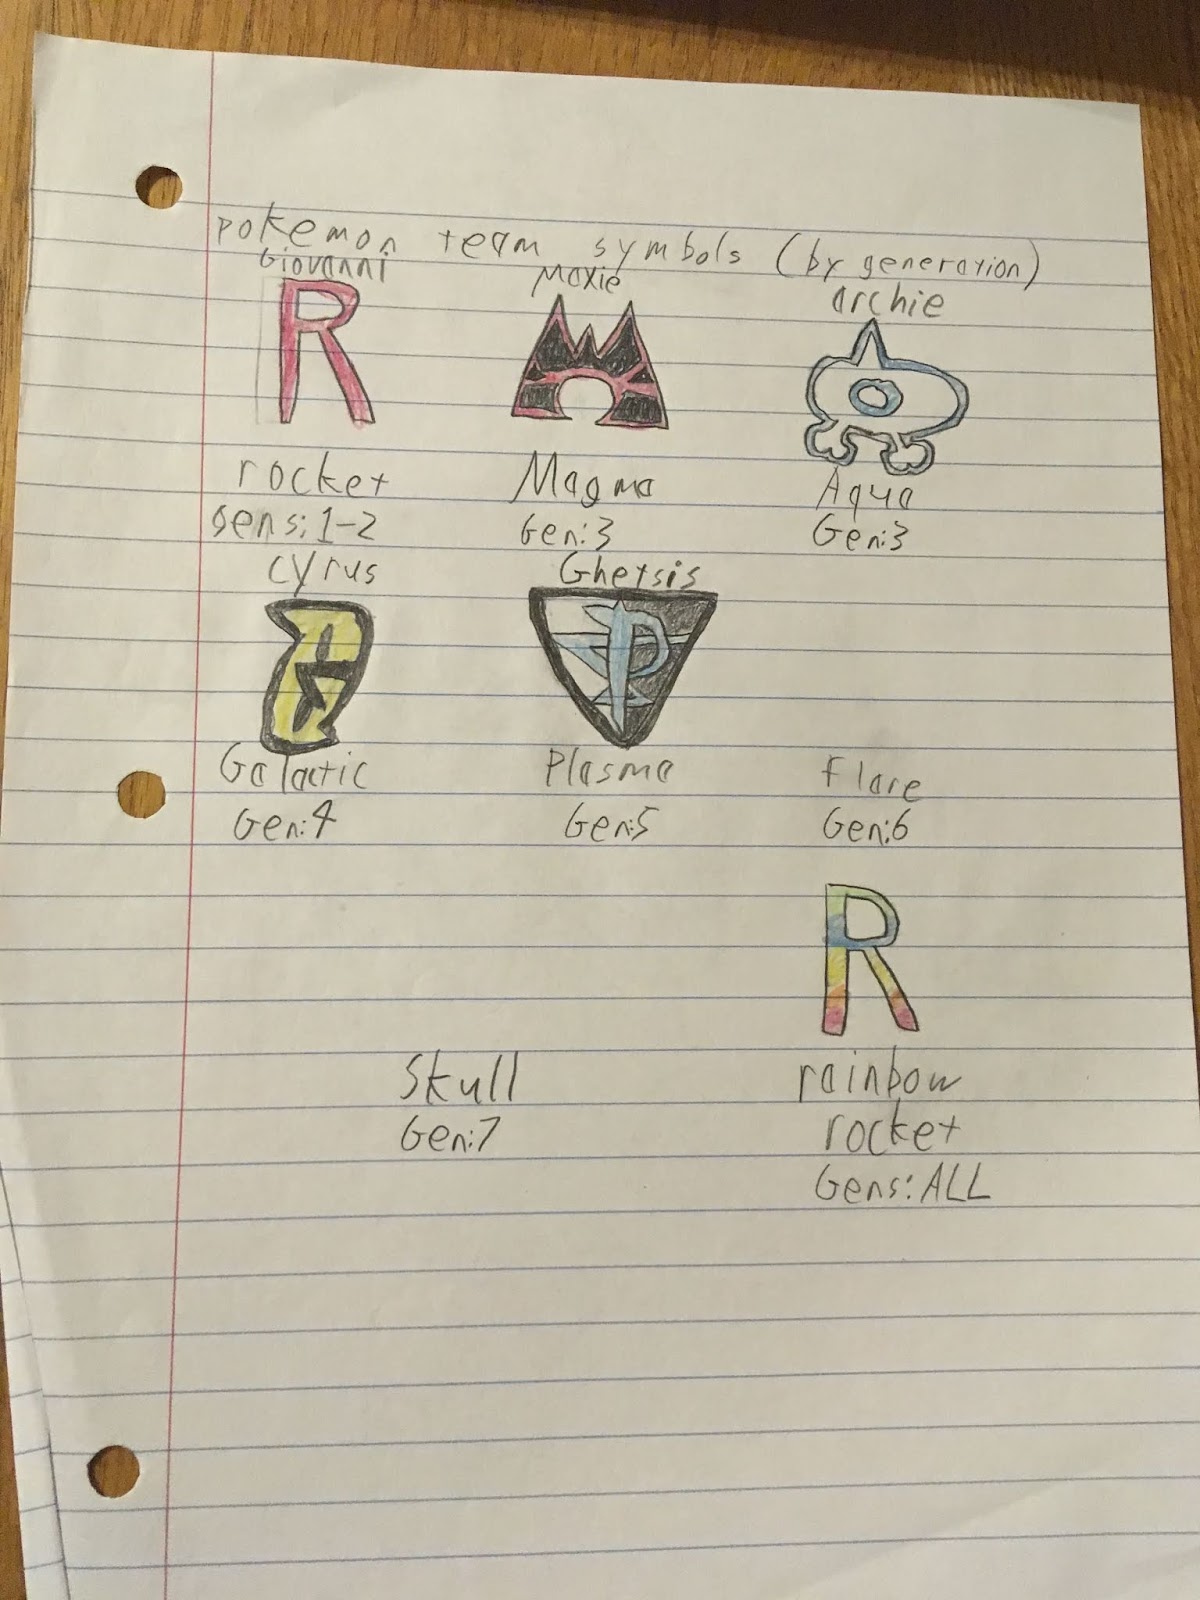 pokemon team symbols (by generation)
Giovanni Maxie archie
R
rocket Magma Aqua
Gens: 1-2 Gen:3 Gen:3
cyrus Ghetsis
G P
Galactic Plasma Flare
Gen:4 Gen:5 Gen:6
R
Skull rainbow
Gen:7 rocket
Gens: ALL